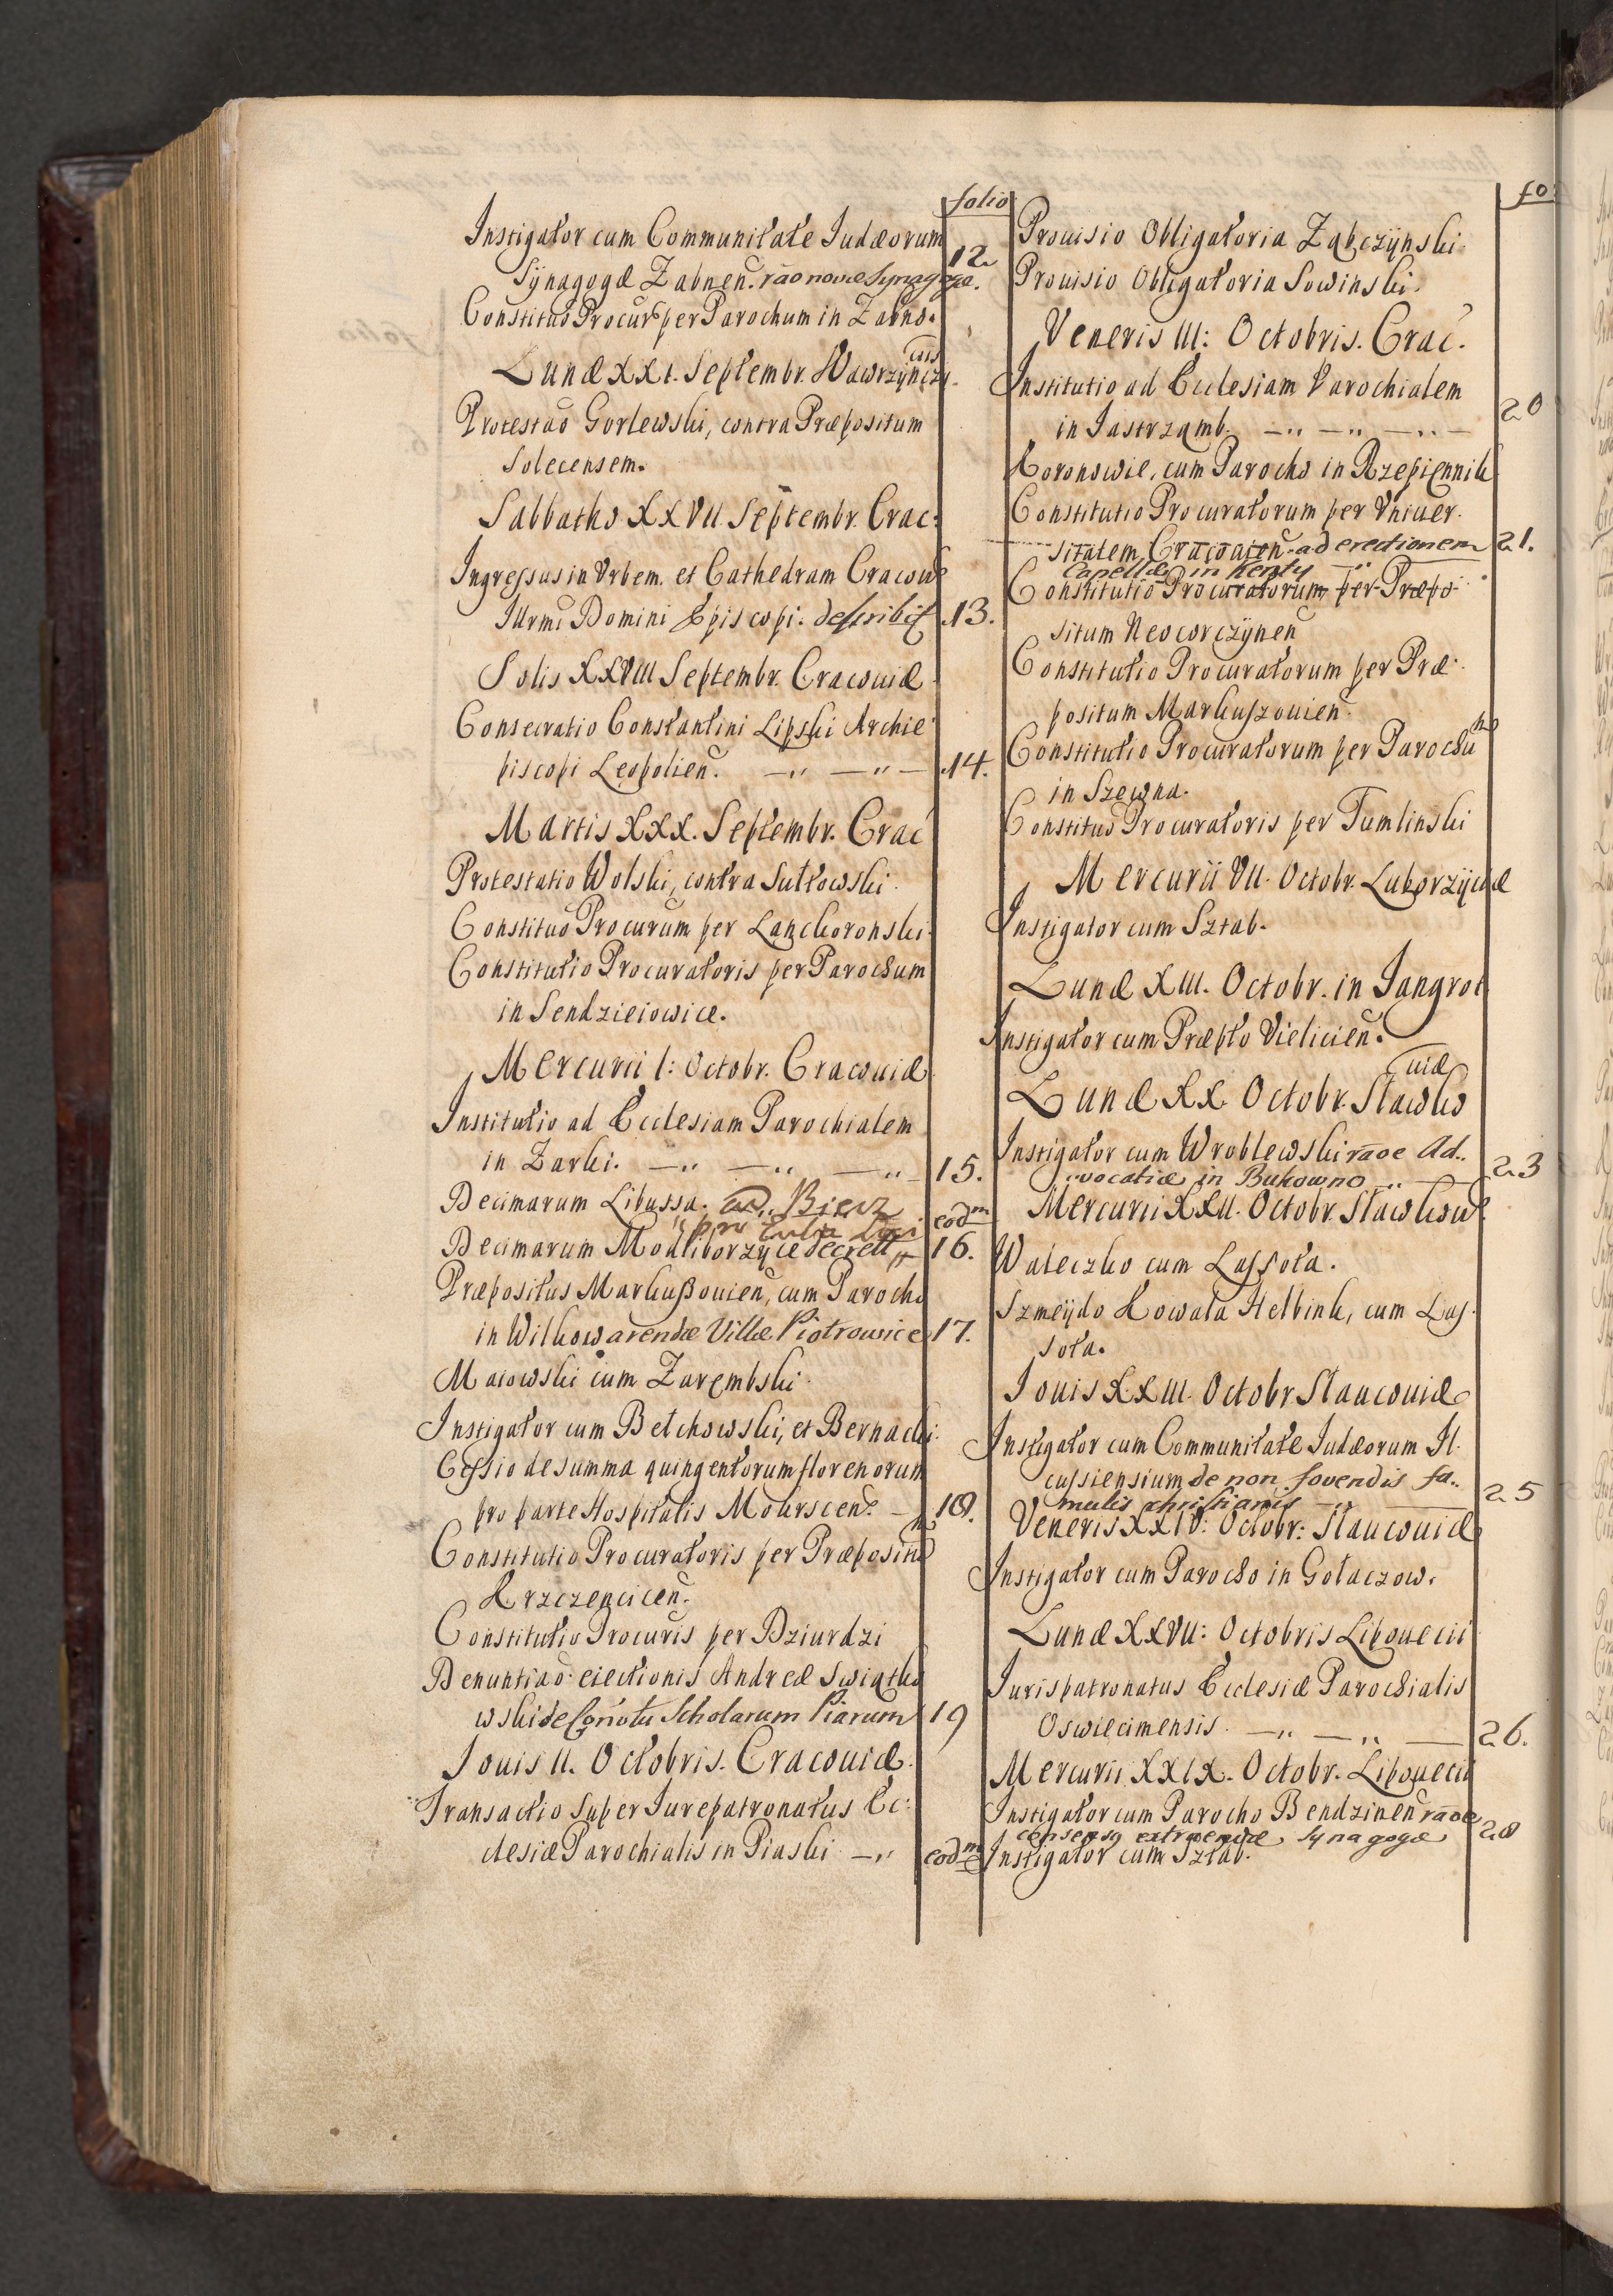 folio
Instigator cum Communitate Iudæorum
Sÿnagogæ Zabnen. rãõ novæ Synagogæ. 12.
Constituõ Procurũ per Parochum in Zabno.
Lunæ XXI. Septembr. Wawrzÿnczy-cis
Protestaõ Gorlewski, contra Præpositum
Solecensem.
Sabbatho XXVII Septembr. Crac:
Ingressus in Vrbem. et Cathedram Cracow̃
Illrmi Domini Episcopi. describit .13.
Solis XXVIII Septembr. Cracouiæ
Consecratio Constantini Lipski Archie
piscopi Leopolien. 14.
Martis XXX. Septembr. Crac
Protestatio Wolski, contra Sułłowski.
Constituõ Procurum per Lanckoronski.
Constitutio Procuratoris per Parochum
in Sendzieiowice.
Mercurii I: Octobr. Cracouiæ
Institutio ad Ecclesiam Parochialem
in Zarki. 15.
Decimarum Libussa. ad Biecz eodm
Decimarum Modliborzyce decrett 16.
Præpositus Markußouien, cum Parocho
in Wilkow arendæ Villæ Piotrowice 17.
Maiowski cum Zarembski.
Instigator cum Betchowski, et Bernacki.
Cessio de summa quingentorum florenorum
pro parte Hospitalis Mokrscen. 18.
Constitutio Procuratoris per Præpositũ
Krzczencicen.
Constitutio Procuris per Dziurdzi
Denuntiaõ eiectionis Andreæ Swiątko
wski de Conõtu Scholarum Piarum 19
Iouis II. Octobris. Cracouiæ.
Transactio super Iurepatronatus Ec:
clesiæ Parochialis in Piaski eodm
fo
Prouisio Obligatoria Ząbczÿnski.
Prouisio Obligatoria Sowinski.
Veneris III: Octobris. Crac.
Institutio ad Ecclesiam Parochialem
in Jastrzamb. 20
Koronowie, cum Parocho in Rzepiennik
Constitutio Procuratorum per Vniuer.
sitatem Cracouien. ad erectionem 21.
Capellæ in Kenty
Constitutio Procuratorum per Præpo
situm Neocorczÿnen
Constitutio Procuratorum per Præ
positum Markuszouien.
Constitutio Procuratorum per Parochũ
in Szewna.
Constituõ Procuratoris per Tumlinski
Mercurii VII. Octobr. Luborzÿcæ
Instigator cum Sztab.
Lunæ XIII. Octobr. in Jangrot
Instigator cum Præpto Vielicien.
Lunæ XX. Octobr. Stawko uiæ
Instigator cum Wroblewski rãõe Ad.
vocatiæ in Bukowno 23
Mercurii XXII. Octobr. Stawkow.
Wateczko cum Lassota.
Szmeÿdo Kowala Helbink, cum Las
sota.
Iouis XXIII. Octobr Slaucouiæ
Instigator cum Communitate Iudæorum Il.
cussiensium de non fovendis fa.. 25
mulis christianis
Veneris XXIV: Octobr: Slaucouiæ
Instigator cum Parocho in Gołaczow.
Lunæ XXVII: Octobris Lipouecii
Iurispatronatus Ecclesiæ Parochialis
Oswiecimensis. 26.
Mercurii XXIX. Octobr. Lipouecii
Instigator cum Parocho Bendzinen rãõe
consensq extruendæ Synagogæ 28
Instigator cum Sztab.